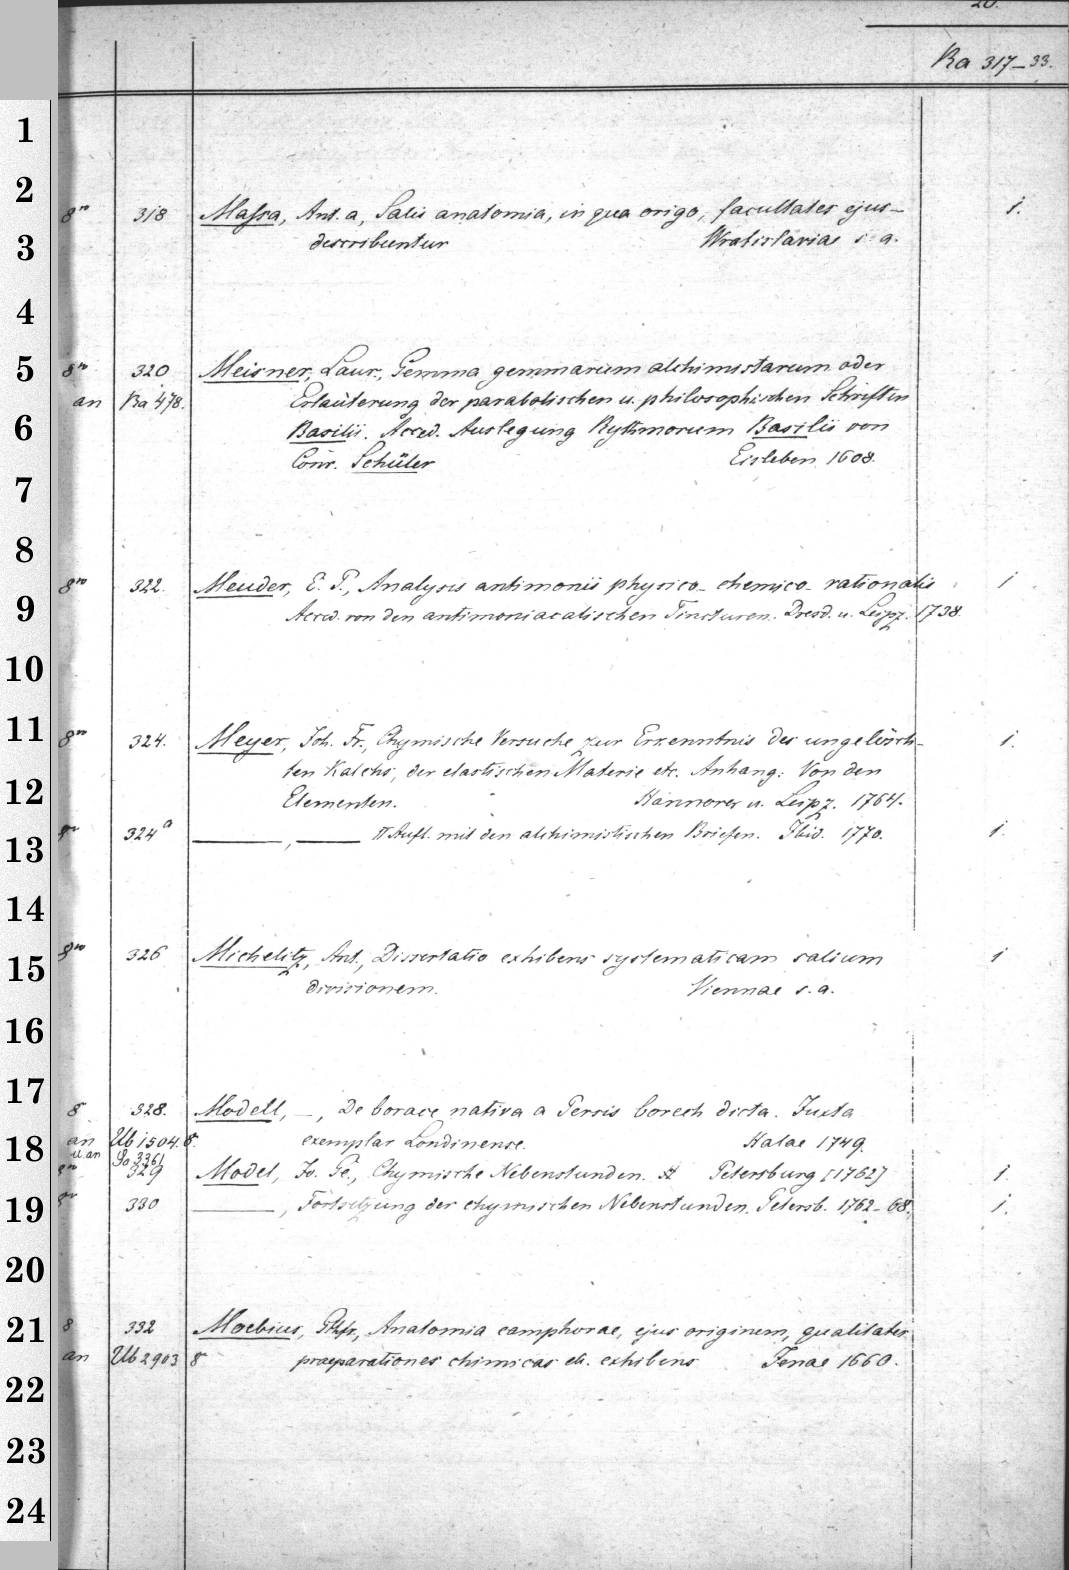 20.
Ra 317-33.
8vo 318 Massa, Ant. a, Salis anatomia, in qua origo, facultates ejus- 1.
describuntur Wratislaviae s. a.
8vo 320 Meisner, Laur., Gemma gemmarum alchimistarum oder
an Ra 478. Erläuterung der parabolischen u. philosophischen Schriften
Basilii. Acced. Auslegung Rythmorum Basilii von
Conr. Schüler Eisleben 1608.
8vo 322. Meuder, E. P., Analysis antimonii physico-chemico-rationalis 1
Acced. von den antimoniacalischen Tincturen. Dresd. u. Leipz. 1738.
8vo 324. Meyer, Joh. Fr., Chymische Versuche zur Erkenntnis des ungelösch- 1.
ten Kalchs, der elastischen Materie etc. Anhang: Von den
Elementen. Hannover u. Leipz. 1764.
8vo 324a ——, —— II. Aufl. mit den alchimistischen Briefen. Ibid. 1770. 1.
8vo 326 Michelitz, Ant., Dissertatio exhibens systematicam salium 1
divisionem. Viennae s. a.
8 328. Modell, —, De borace nativa a Persis borech dicta. Juxta
an Ub 1504. 8. exemplar Londinense. Halae 1749.
u. an So 3361
8vo 329 Model, Jo. Ge., Chymische Nebenstunden. Petersburg [1762] 1
8vo 330 ——, Fortsetzung der chymischen Nebenstunden. Petersb. 1762-68. 1.
8 332 Moebius, Gthfr., Anatomia camphorae, ejus originem, qualitates
an Ub 2903 8 praeparationes chimicas etc. exhibens Jenae 1660.
1
2
3
4
5
6
7
8
9
10
11
12
13
14
15
16
17
18
19
20
21
22
23
24